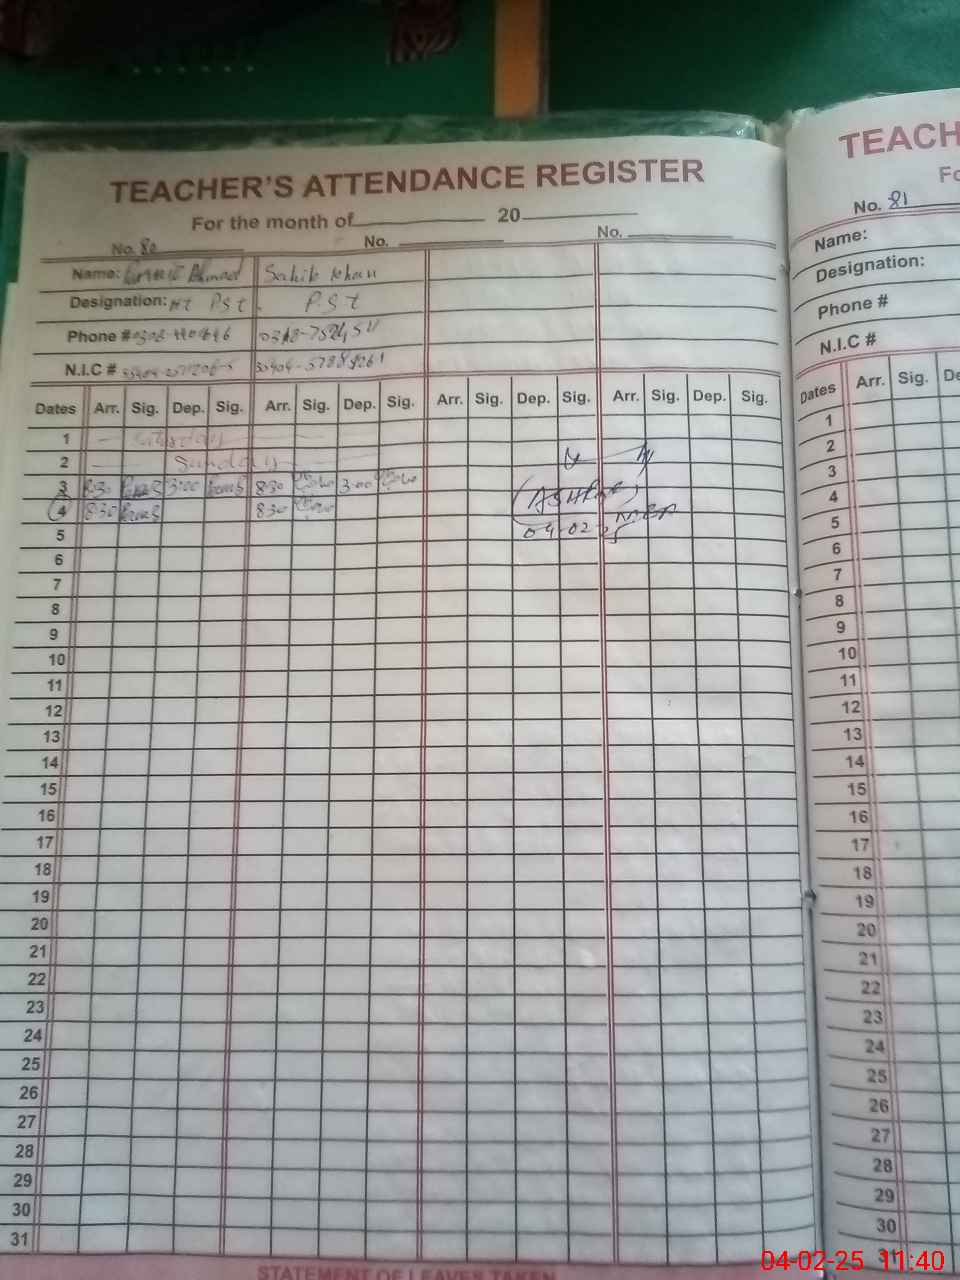 TEACHER'S ATTENDANCE REGISTER
For the month of 20
No. 80 No. No.
Name: Ahmad Sahib Khan
Designation: Ht PSt P.S.t
Phone #
N.I.C #
Dates Arr. Sig. Dep. Sig. Arr. Sig. Dep. Sig. Arr. Sig. Dep. Sig. Arr. Sig. Dep. Sig.
1 Saturday
2 Sunday
3 8:30 3:00 8:30 3:00
4 8:30 8:30
5
04-02-25
6
7
8
9
10
11
12
13
14
15
16
17
18
19
20
21
22
23
24
25
26
27
28
29
30
31
STATEMENT OF LEAVES TAKEN
TEACH
Fo
No. 81
Name:
Designation:
Phone #
N.I.C #
Dates Arr. Sig. De
1
2
3
4
5
6
7
8
9
10
11
12
13
14
15
16
17
18
19
20
21
22
23
24
25
26
27
28
29
30
31
04-02-25 11:40